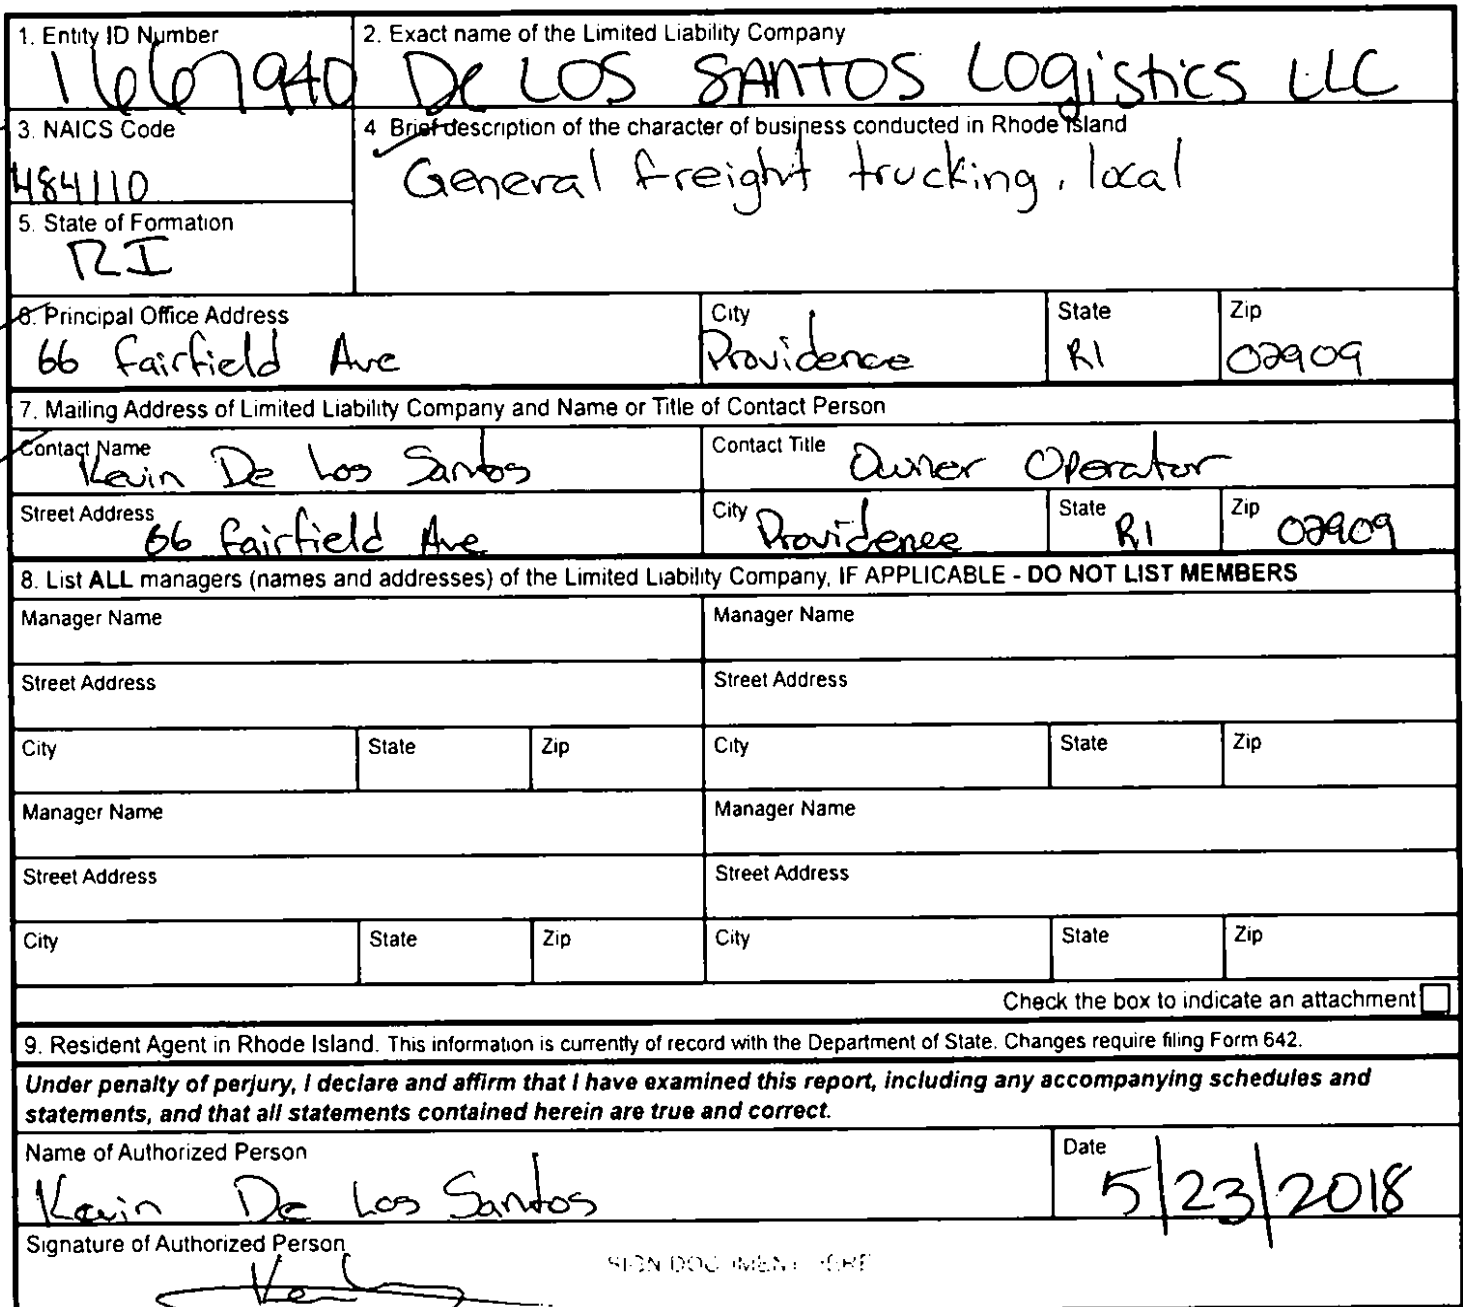 1. Entity ID Number
1667940
2. Exact name of the Limited Liability Company
De Los SANTOS Logistics LLC
3. NAICS Code
484110
4 Brief description of the character of business conducted in Rhode Island
General freight trucking, local
5. State of Formation
RI
6. Principal Office Address
66 Fairfield Ave
City
Providence
State
RI
Zip
02909
7. Mailing Address of Limited Liability Company and Name or Title of Contact Person
Contact Name
Kevin De Los Santos
Contact Title
Owner Operator
Street Address
66 Fairfield Ave
City
Providence
State
RI
Zip
02909
8. List ALL managers (names and addresses) of the Limited Liability Company, IF APPLICABLE - DO NOT LIST MEMBERS
Manager Name
Manager Name
Street Address
Street Address
City
State
Zip
City
State
Zip
Manager Name
Manager Name
Street Address
Street Address
City
State
Zip
City
State
Zip
Check the box to indicate an attachment
9. Resident Agent in Rhode Island. This information is currently of record with the Department of State. Changes require filing Form 642.
Under penalty of perjury, I declare and affirm that I have examined this report, including any accompanying schedules and
statements, and that all statements contained herein are true and correct.
Name of Authorized Person
Kevin De Los Santos
Date
5/23/2018
Signature of Authorized Person
SIGN DOCUMENT HERE